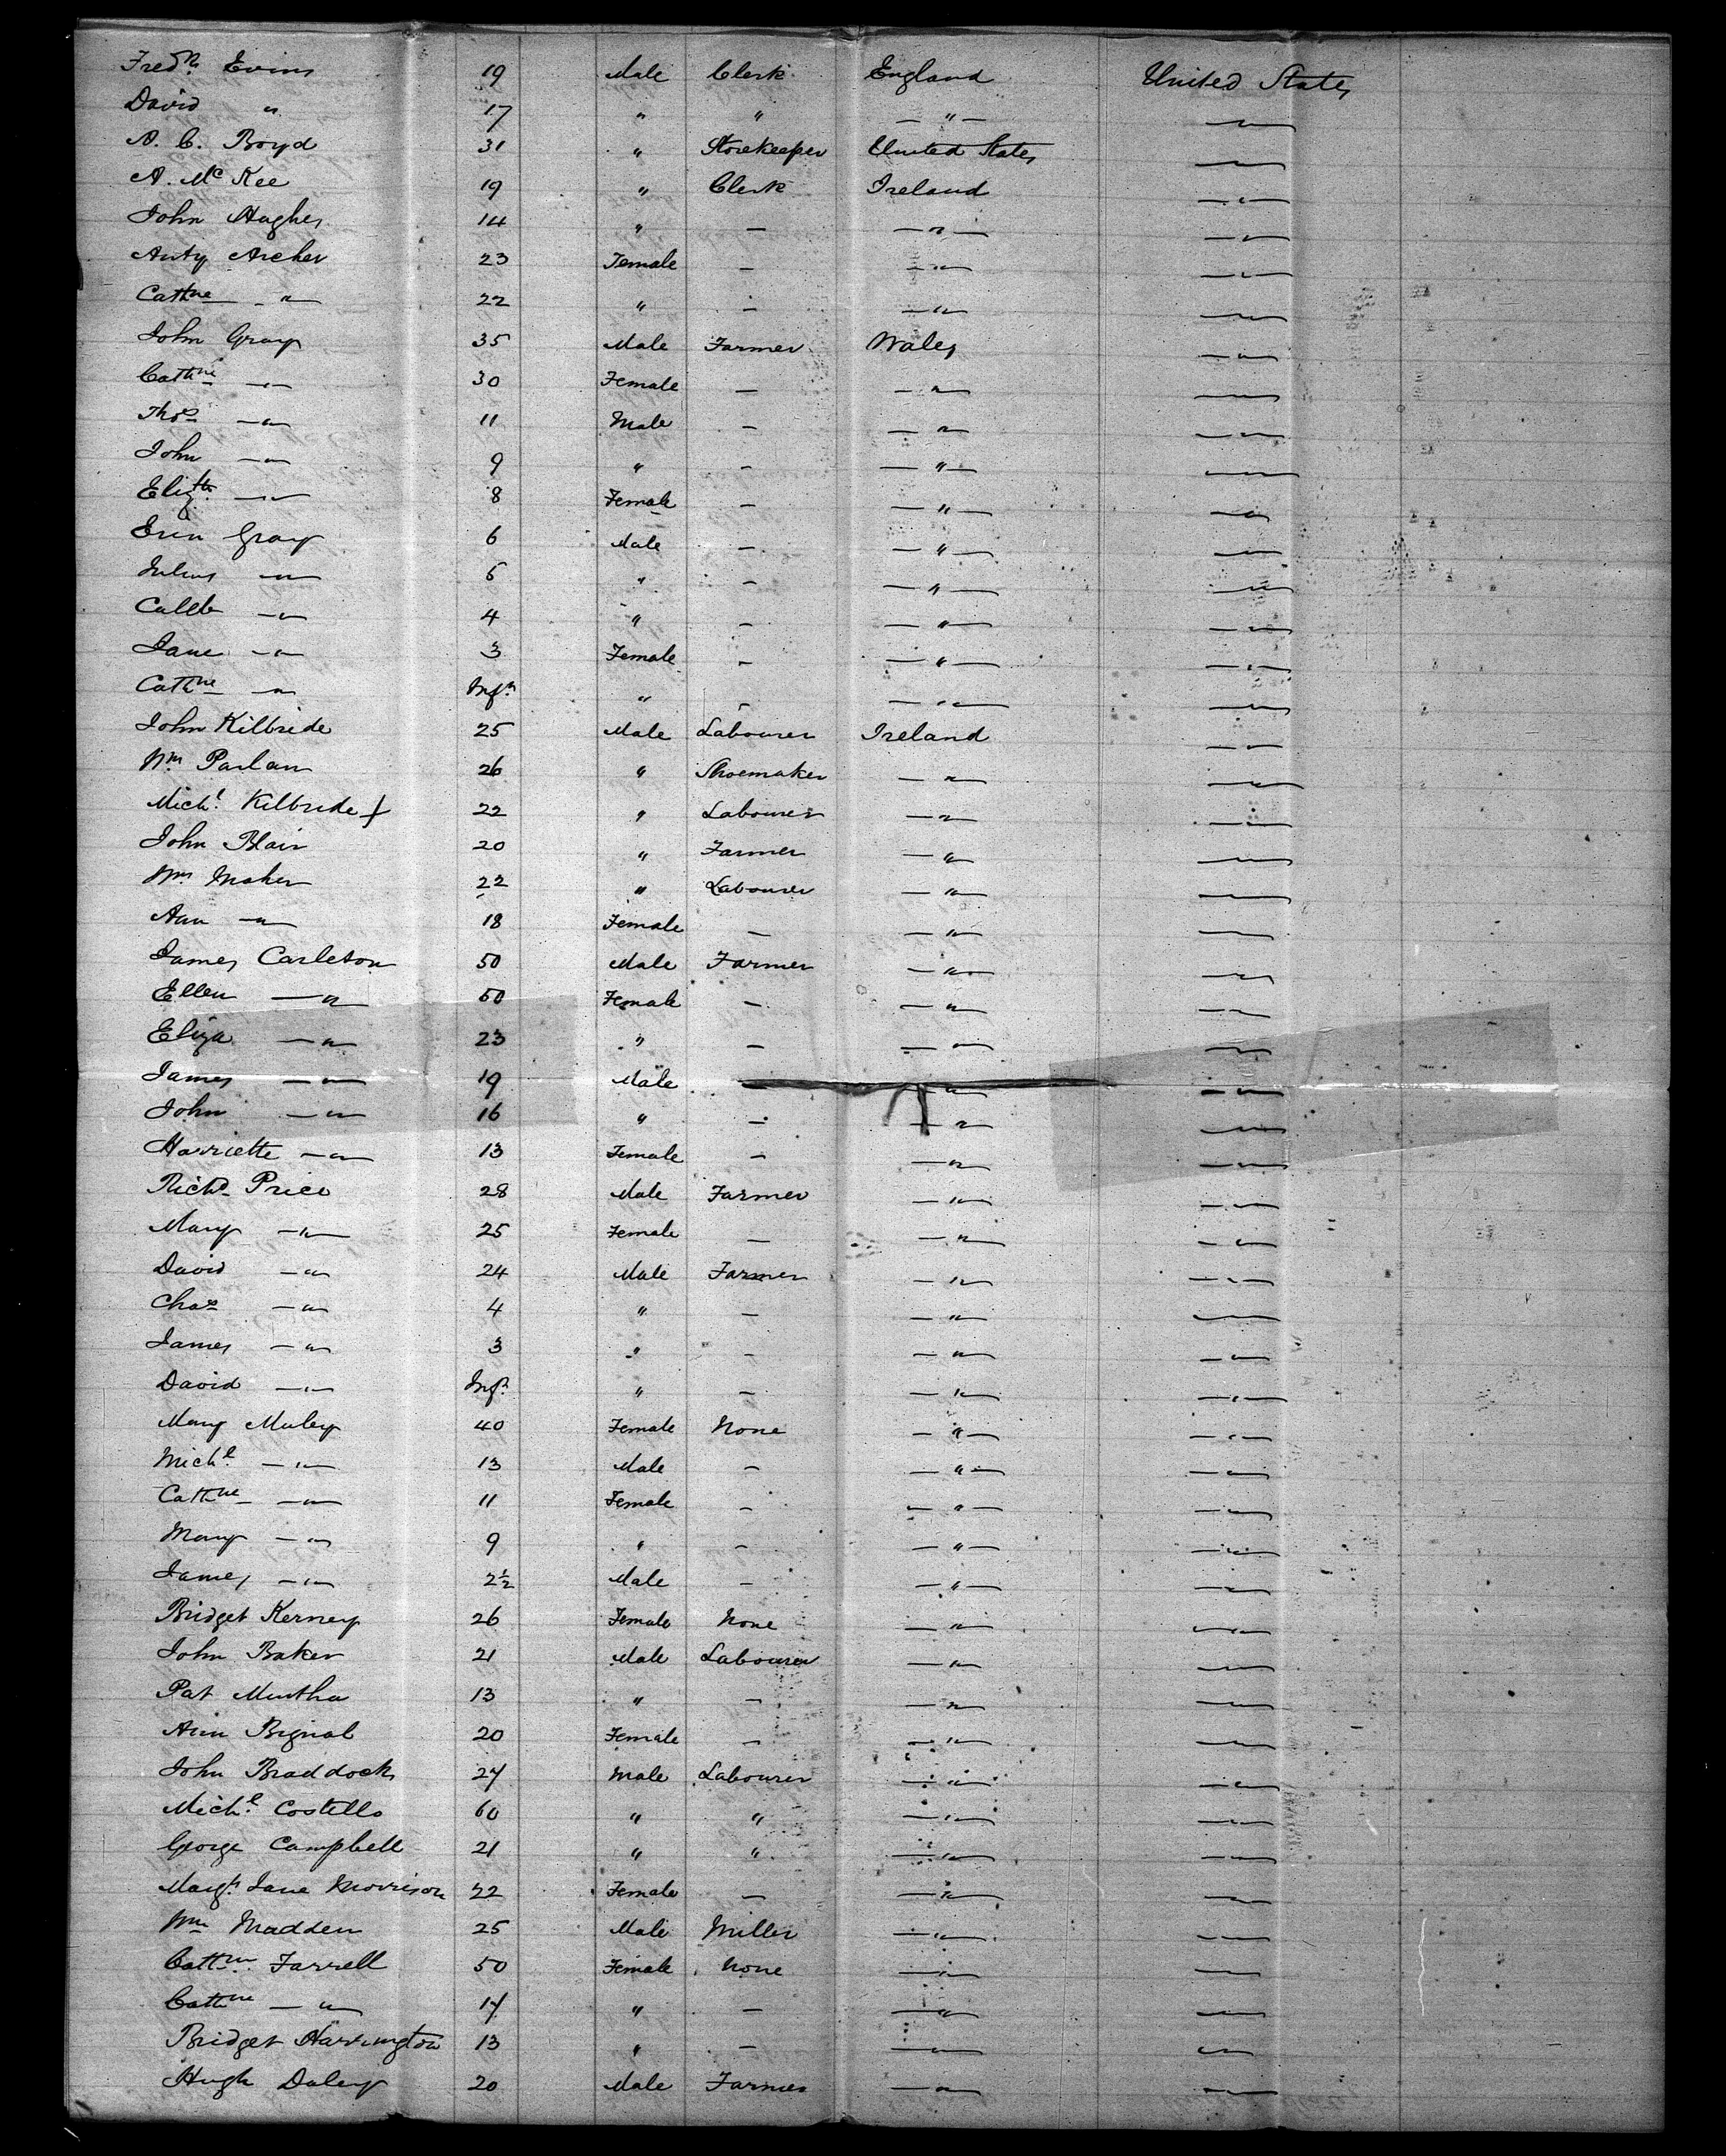 Fredk Evins 19 Male Clerk England United States
David " 17 " " — " — — " —
A. C. Boyd 31 " Storekeeper United States — " —
A. Mc Kee 19 " Clerk Ireland — " —
John Hughes 14 " — — " — — " —
Anty Archer 23 Female — — " — — " —
Cathne — " — 22 " — — " — — " —
John Gray 35 Male Farmer Wales — " —
Cathne — " — 30 Female — — " — — " —
Thos — " — 11 Male — — " — — " —
John — " — 9 " — — " — — " —
Elizth — " — 8 Female — — " — — " —
Erin Gray 6 Male — — " — — " —
Julius — " — 5 " — — " — — " —
Caleb — " — 4 " — — " — — " —
Jane — " — 3 Female — — " — — " —
Cathne — " — Inft " — — " — — " —
John Kilbride 25 Male Labourer Ireland — " —
Wm Parlan 26 " Shoemaker — " — — " —
Michl Kilbride 22 " Labourer — " — — " —
John Blair 20 " Farmer — " — — " —
Wm Maher 22 " Labourer — " — — " —
Ann — " — 18 Female — — " — — " —
James Carleton 50 Male Farmer — " — — " —
Ellen — " — 50 Female — — " — — " —
Eliza — " — 23 " — — " — — " —
James — " — 19 Male — " — — " —
John — " — 16 " — — " — — " —
Harriette — " — 13 Female — — " — — " —
Richd Price 28 Male Farmer — " — — " —
Mary — " — 25 Female — — " — — " —
David — " — 24 Male Farmer — " — — " —
Chas — " — 4 " — — " — — " —
James — " — 3 " — — " — — " —
David — " — Inft " — — " — — " —
Mary Muley 40 Female None — " — — " —
Michl — " — 13 Male — — " — — " —
Cathne — " — 11 Female — — " — — " —
Mary — " — 9 " — — " — — " —
James — " — 2½ Male — — " — — " —
Bridget Kerney 26 Female None — " — — " —
John Baker 21 Male Labourer — " — — " —
Pat Murtha 13 " — — " — — " —
Ann Bignal 20 Female — — " — — " —
John Braddock 27 Male Labourer — " — — " —
Michl Costello 60 " " — " — — " —
George Campbell 21 " " — " — — " —
Margt Jane Morrison 22 Female — — " — — " —
Wm Madden 25 Male Miller — " — — " —
Cathne Farrell 50 Female None — " — — " —
Cathne — " — 17 " — — " — — " —
Bridget Harrington 13 " — — " — — " —
Hugh Daley 20 Male Farmer — " — — " —